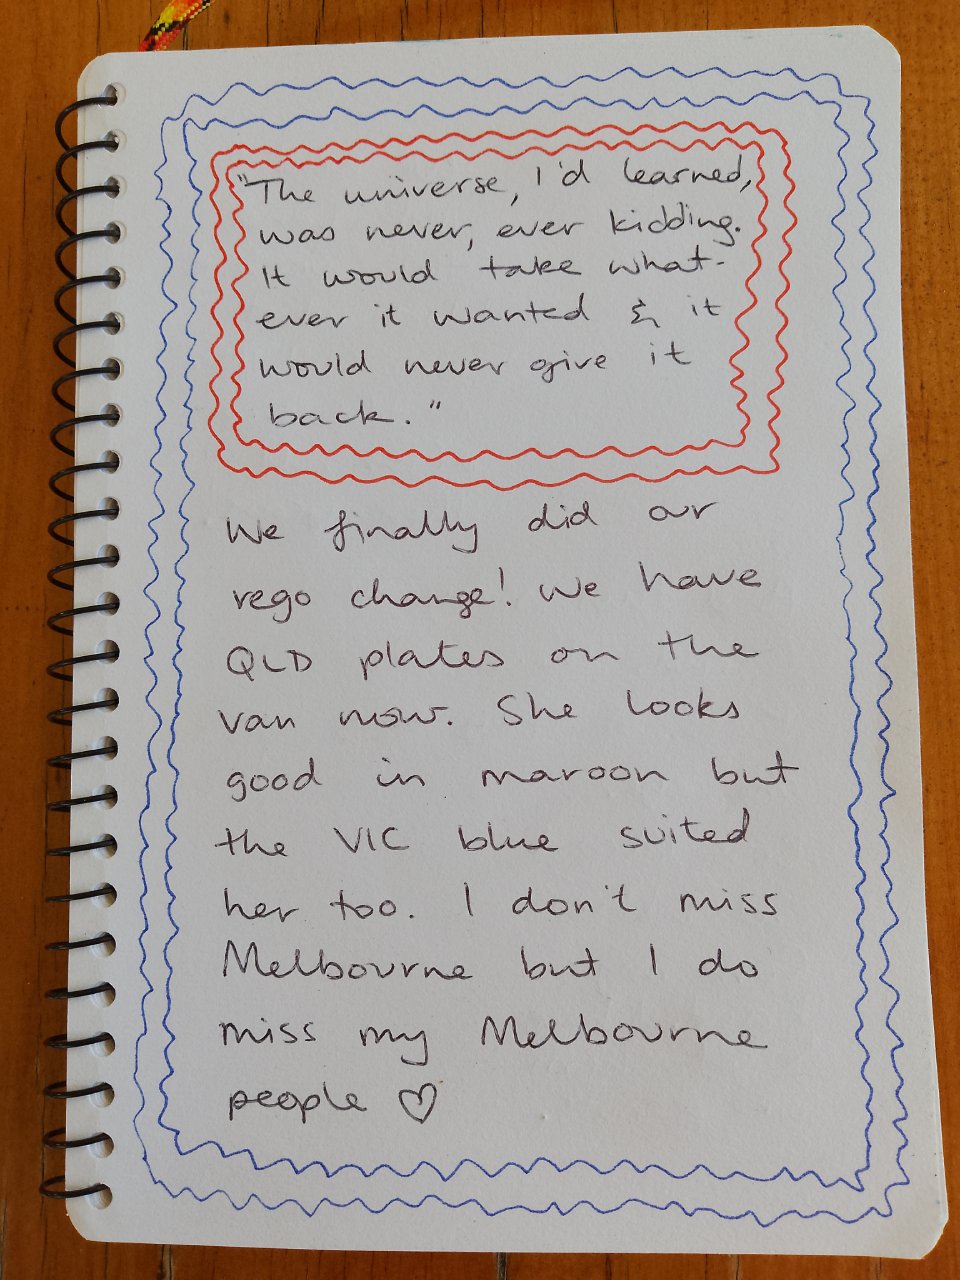 "The universe, I'd learned,
was never, ever kidding.
It would take what-
ever it wanted & it
would never give it
back."
We finally did our
rego change! We have
QLD plates on the
van now. She looks
good in maroon but
the VIC blue suited
her too. I don't miss
Melbourne but I do
miss my Melbourne
people ♡